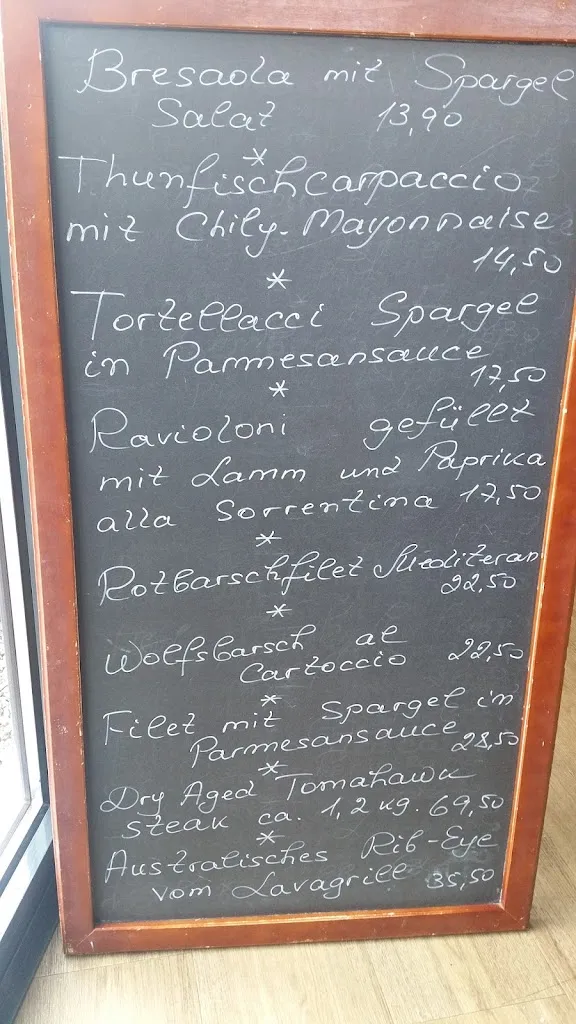 Bresaola mit Spargel
Salat 13,90
*
Thunfischcarpaccio
mit Chily-Mayonnaise
14,50
*
Tortellacci Spargel
in Parmesansauce
17,50
*
Ravioloni gefüllt
mit Lamm und Paprika
alla Sorrentina 17,50
*
Rotbarschfilet Mediteran
22,50
*
Wolfsbarsch al
Cartoccio 22,50
*
Filet mit Spargel in
Parmesansauce 28,50
*
Dry Aged Tomahawk
steak ca. 1,2 kg. 69,50
*
Australisches Rib-Eye
vom Lavagrill 35,50